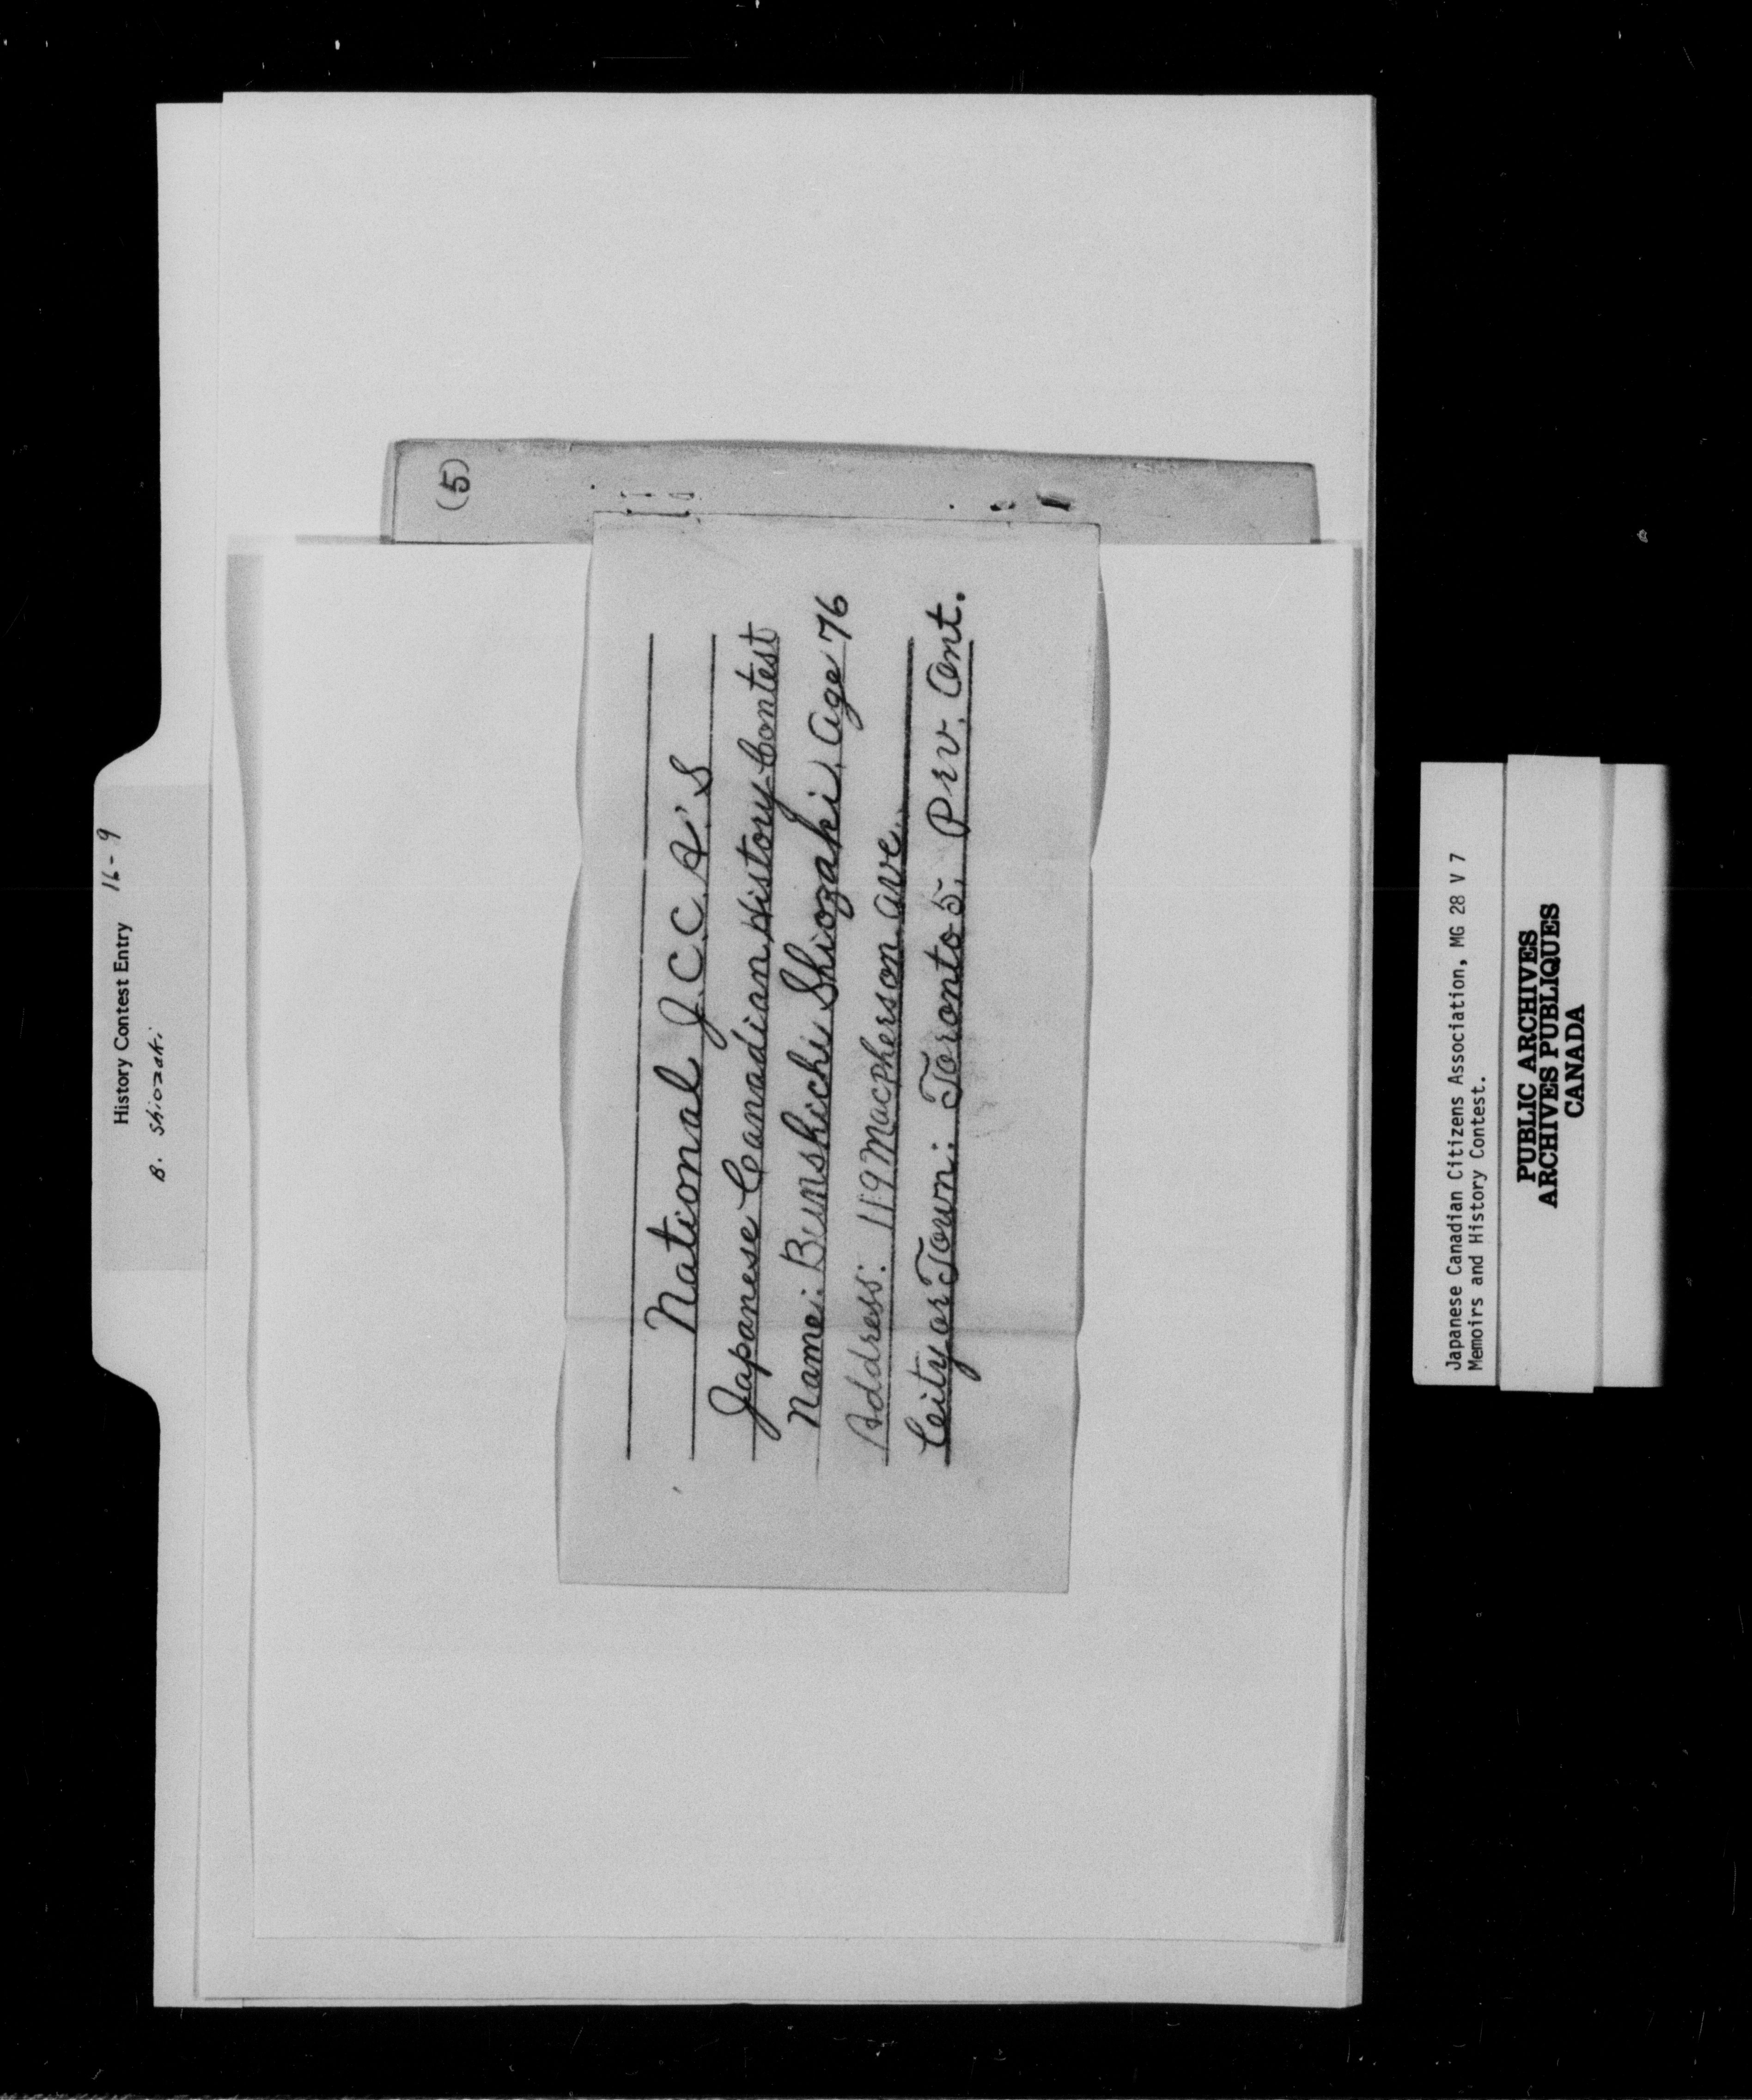 History Contest Entry 16-9
B. Shiozaki
(5)
National J.C.C.A.'S
Japanese Canadian History Contest
Name: Bunshichi Shiozaki, Age 76
Address: 119 Macpherson Ave.
City or Town: Toronto 5. Prv. Ont.
Japanese Canadian Citizens Association, MG 28 V 7
Memoirs and History Contest.
PUBLIC ARCHIVES
ARCHIVES PUBLIQUES
CANADA